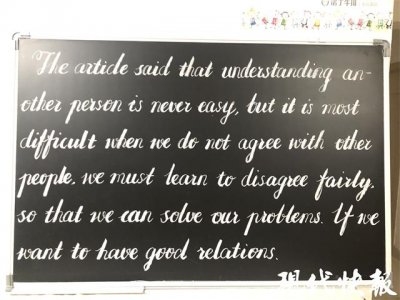 The article said that understanding an-
other person is never easy, but it is most
difficult when we do not agree with other
people. we must learn to disagree fairly.
so that we can solve our problems. If we
want to have good relations.
现代快报